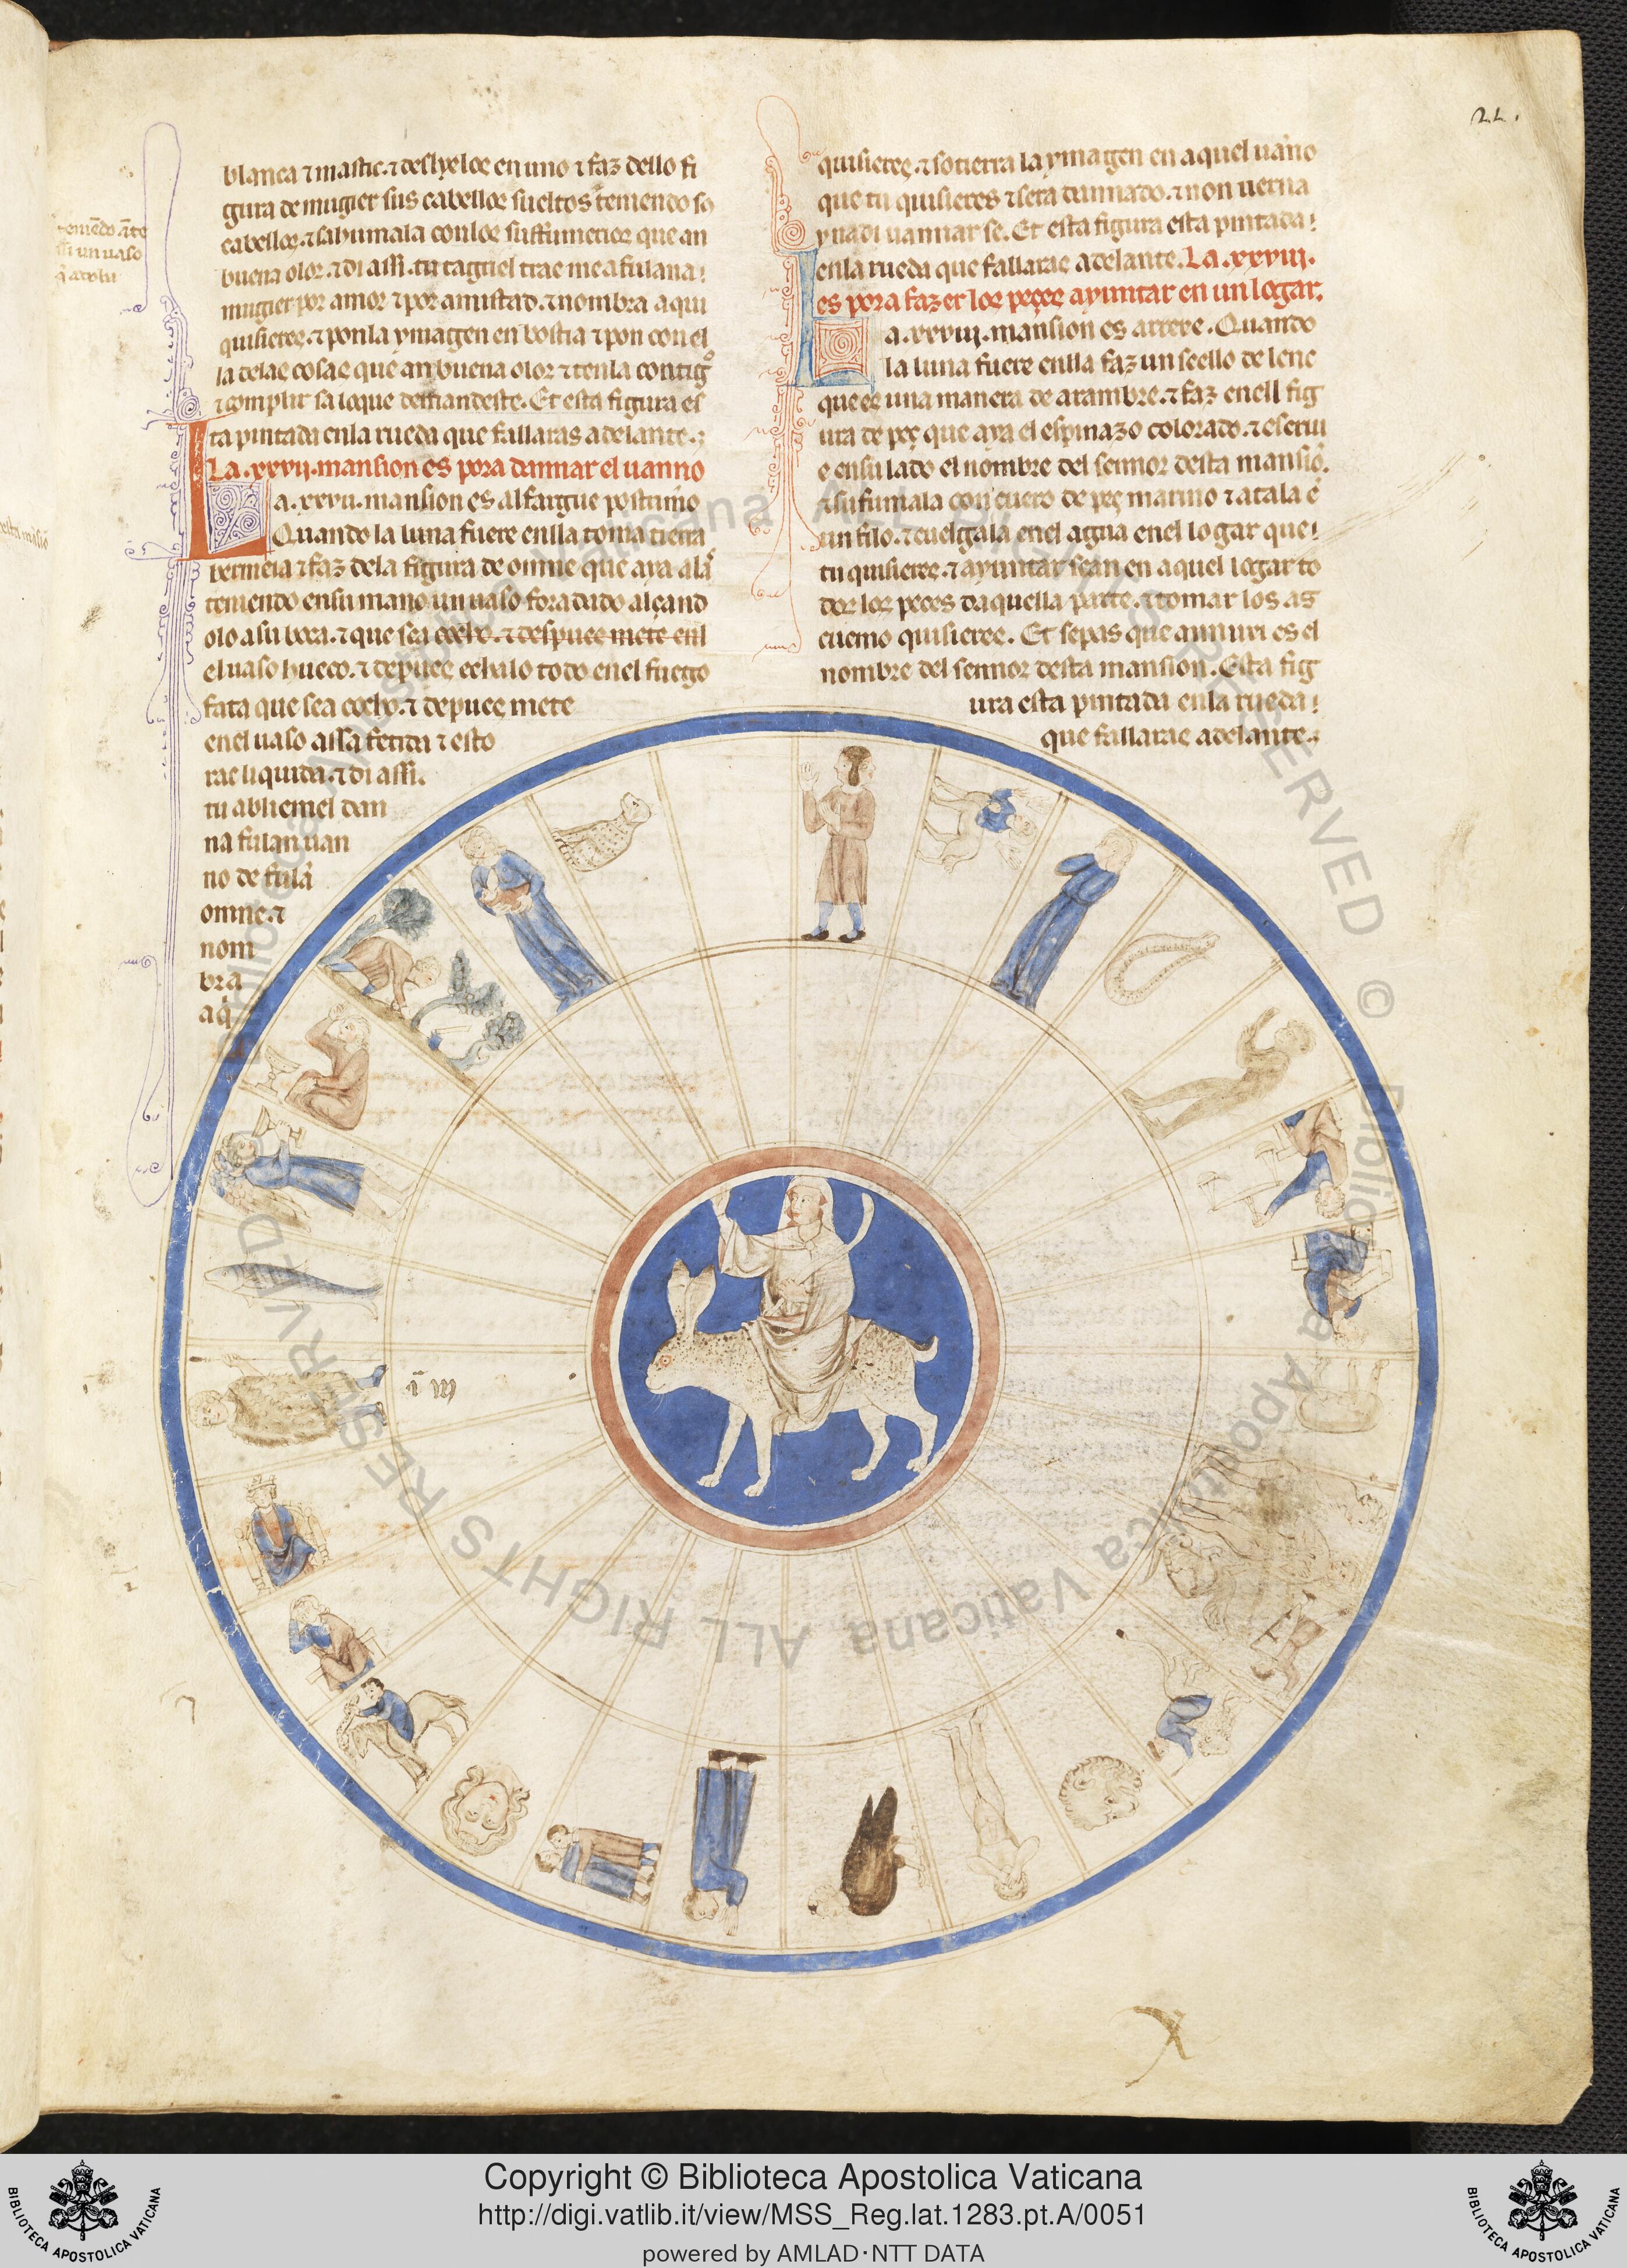 22.
blanca ⁊ mastic. ⁊ desyeloc en uno ⁊ faz dello fi
gura de mugier sus cabellos sueltos teniendo so
cabelloc. ⁊ sahumala con loc suffumerioc que an
buena olor. ⁊ di assi. tu tagriel trae me a fulana
mugier por amor ⁊ por amistad. ⁊ nombra a qui
quisierec. ⁊ pon la ymagen en bostia ⁊ pon con el
la delac cosac que an buena olor ⁊ tenla contigo
⁊ complir sa lo que demandeste. Et esta figura es
ta pintada en la rueda que fallaras adelante.
La .xxvij. mansion es pora dannar el uanno
La .xxvij. mansion es alfargue postrimo
Quando la luna fuere enlla toma tierra
bermeia ⁊ faz dela figura de omne que aya alas
teniendo en su mano un uaso foradado alçand
olo a su boca. ⁊ que sea cocho. ⁊ despuec mete enl
el uaso hueco. ⁊ depuec echalo todo en el fuego
fata que sea cocho. ⁊ depuec mete
en el uaso assa fetida ⁊ esto
rac liquida. ⁊ di assi.
tu abliemel dan
na fulan uan
no de fulã
omne. ⁊
nom
bra
a q̃
quisierec. ⁊ sotierra la ymagen en aquel uãno
que tu quisieres ⁊ sera dannado. ⁊ non uerna
y nadi uannar se. Et esta figura esta pintada
en la rueda que fallarac adelante. La .xxviij.
es pora fazer loc peçec ayuntar en un logar.
La .xxviij. mansion es arrexe. Quando
la luna fuere enlla faz un seello de lene
que ec una manera de arambre. ⁊ faz enell fig
ura de peç que aya el espinazo colorado. ⁊ escriu
e en su lado el nombre del sennor desta mansiõ.
⁊ sufumala con cuero de peç marino ⁊ atala ẽ
un filo. ⁊ cuelgala enel agua enel logar que
tu quisierec. ⁊ ayuntar sean en aquel logar to
dos los peces daquella parte. ⁊ tomar los as
cuemo quisierec. Et sepas que annuxi es el
nombre del sennor desta mansion. Esta fig
ura esta pintada en la rueda
que fallarac adelante.
Copyright © Biblioteca Apostolica Vaticana
http://digi.vatlib.it/view/MSS_Reg.lat.1283.pt.A/0051
powered by AMLAD·NTT DATA
BIBLIOTECA APOSTOLICA VATICANA
BIBLIOTECA APOSTOLICA VATICANA
Biblioteca Apostolica Vaticana ALL RIGHTS RESERVED © Biblioteca Apostolica Vaticana ALL RIGHTS RESERVED ©